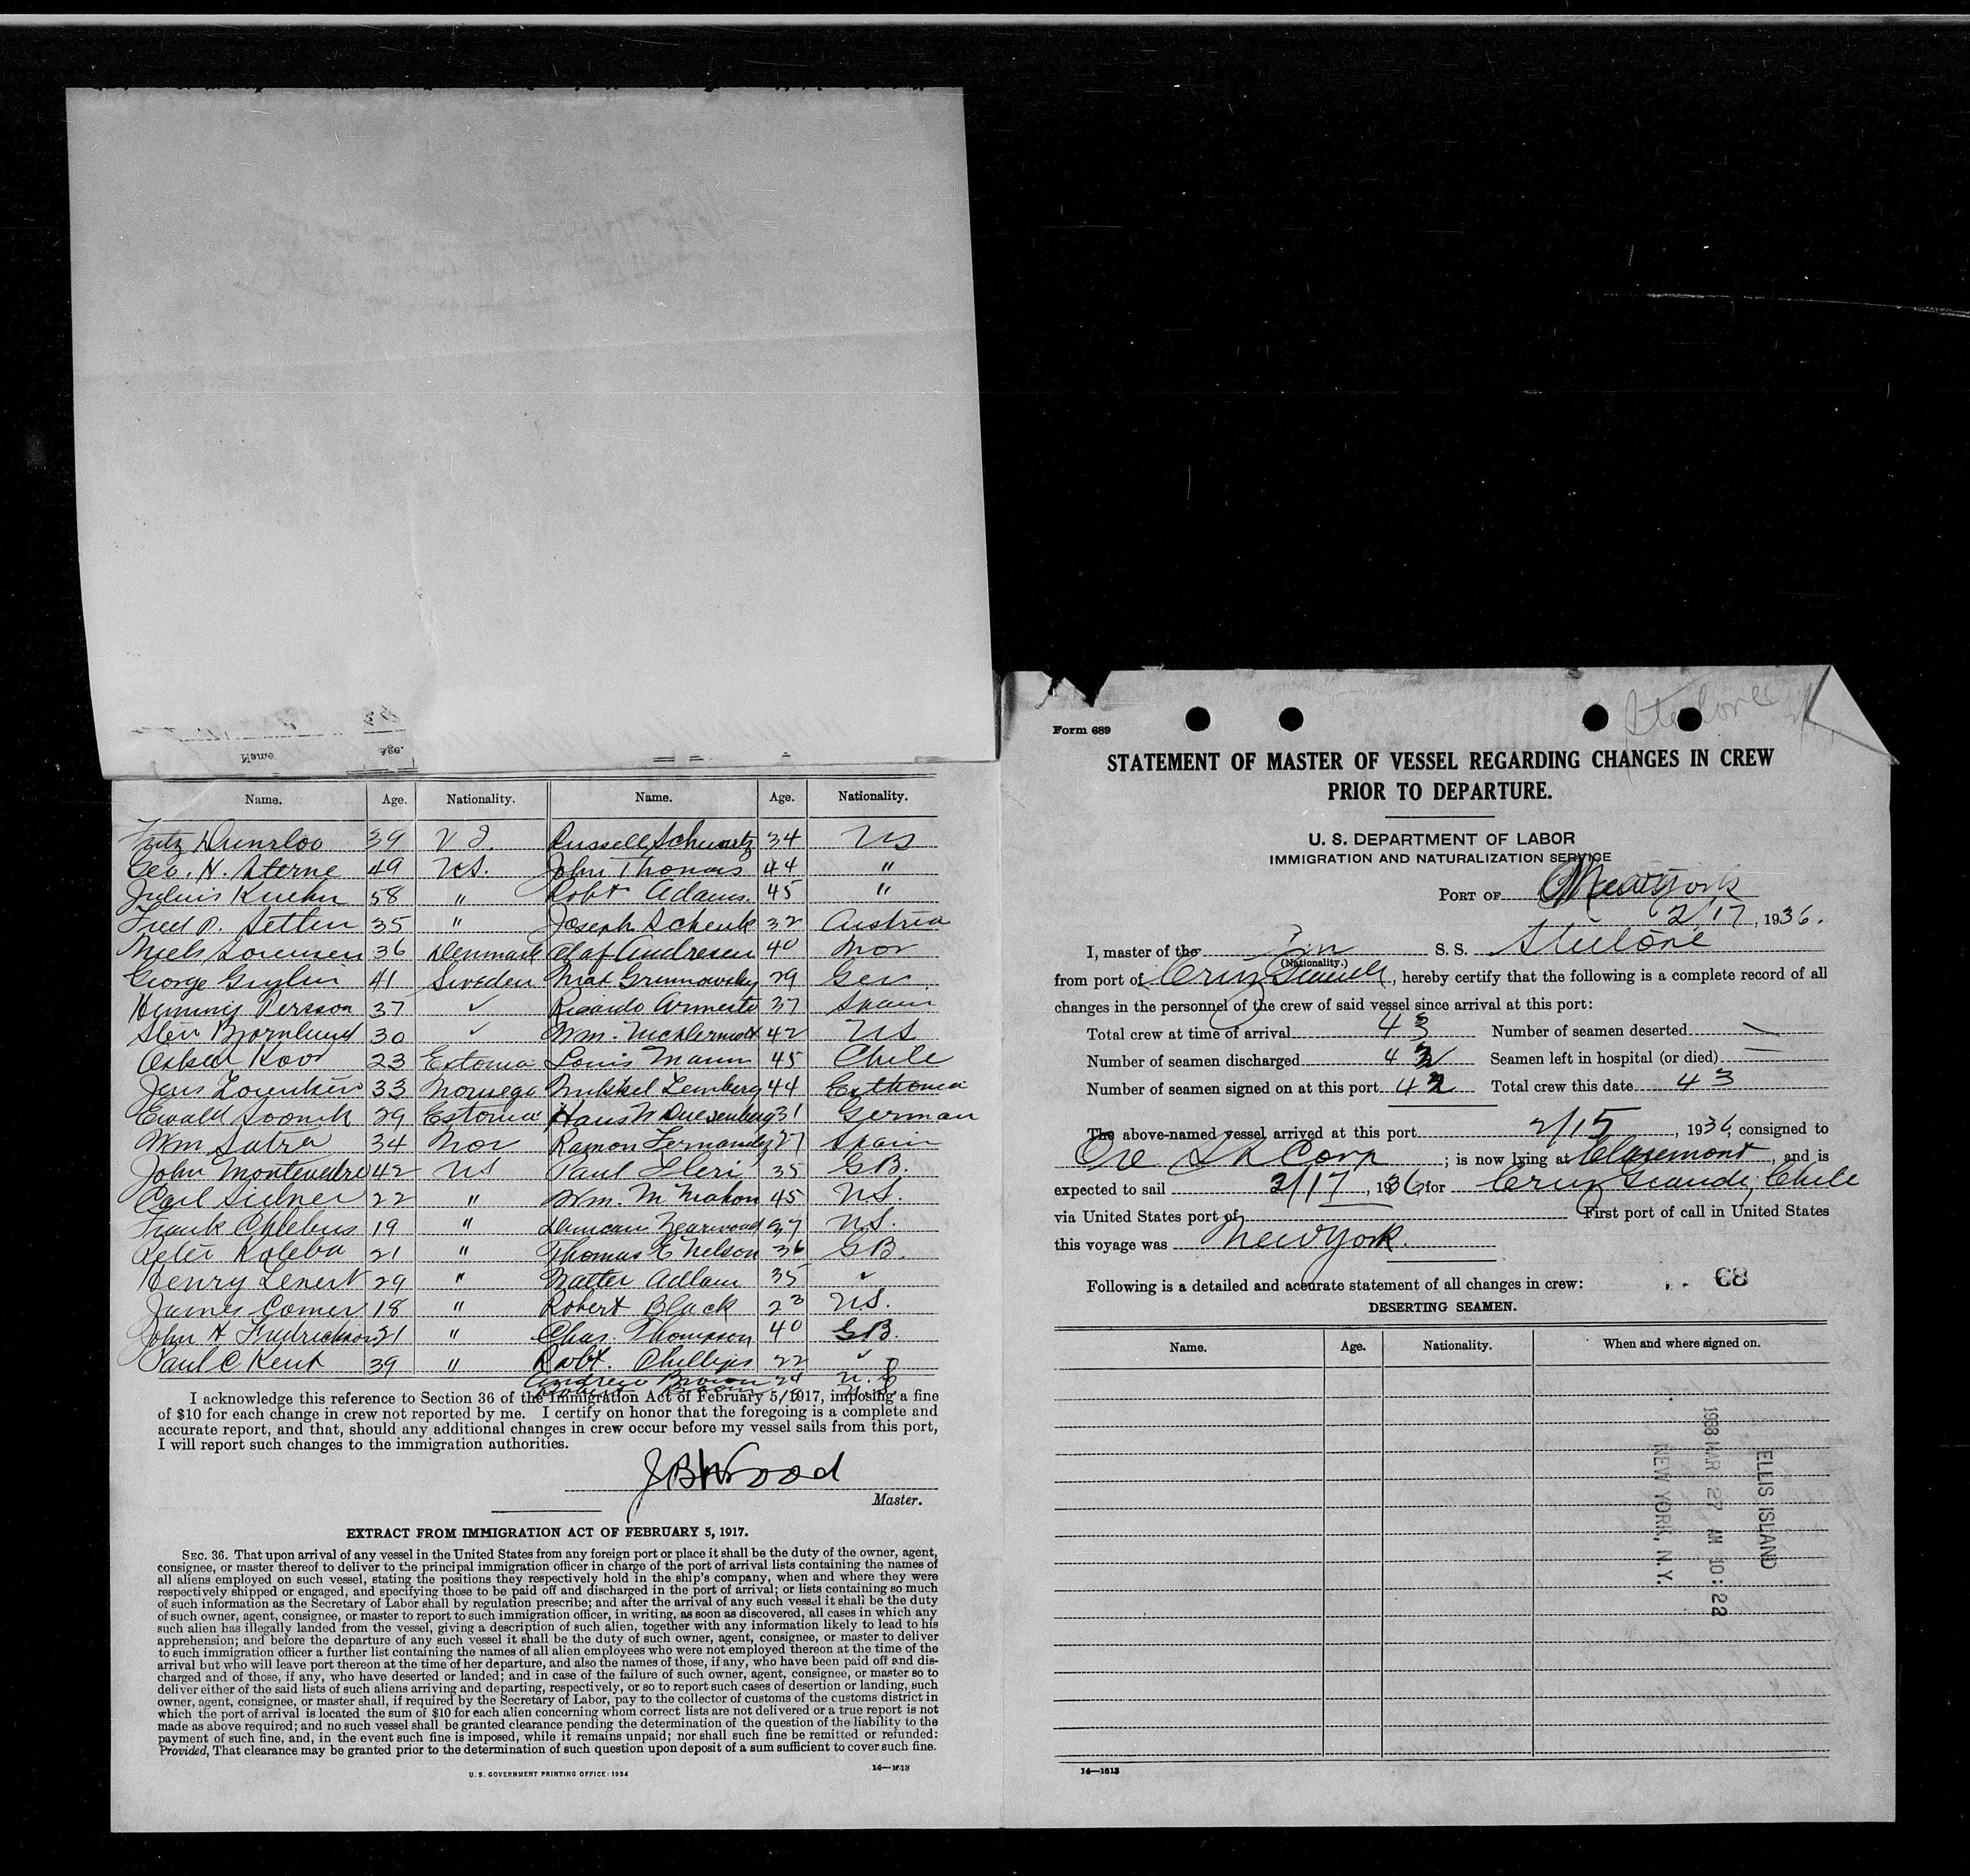 Name. Age. Nationality. Name. Age. Nationality.
Fritz 39 V I. Russell Schwartz 34 US
Geo. H. Sterne 49 US. John Thomas 44 "
Julius Kuehn 58 " Robt Adams. 45 "
Fred P. 35 " Joseph Schenk 32 Austria
Niels Sorensen 36 Denmark Olaf Andresen 40 Nor
George 41 Sweden Max 29 Ger.
Henning Persson 37 ✓ Ricardo 37 Spain
Sten Bjornlund 30 ✓ Wm. McDermott 42 US
Oskar Koov 23 Estonia Louis Mann 45 Chile
Jens 33 Norwega Mikkel Lemberg 44 Esthonia
Ewald Soonik 29 Estonia Hans W Duesenberg 31 German
Wm Satra 34 Nor Ramon Fernandez 27 Spain
John Montevedre 42 US Paul 35 GB.
Carl Sidner 22 " Wm. M Mahon 45 US.
Frank Chlebus 19 " Duncan Yearwood 37 US.
Peter Koleba 21 " Thomas E Nelson 36 GB.
Henry Lenert 29 " Walter Adlam 35 ✓
James Comer 18 " Robert Black 23 US.
John H Fredrickson 21 " Chas. Thompson 40 GB.
Paul C. Kent 39 " Robt. Phillips 22 ✓
Andrew Brown 24 U.S.
I acknowledge this reference to Section 36 of the Immigration Act of February 5, 1917, imposing a fine
of $10 for each change in crew not reported by me. I certify on honor that the foregoing is a complete and
accurate report, and that, should any additional changes in crew occur before my vessel sails from this port,
I will report such changes to the immigration authorities.
J B Wood
Master.
EXTRACT FROM IMMIGRATION ACT OF FEBRUARY 5, 1917.
SEC. 36. That upon arrival of any vessel in the United States from any foreign port or place it shall be the duty of the owner, agent,
consignee, or master thereof to deliver to the principal immigration officer in charge of the port of arrival lists containing the names of
all aliens employed on such vessel, stating the positions they respectively hold in the ship's company, when and where they were
respectively shipped or engaged, and specifying those to be paid off and discharged in the port of arrival; or lists containing so much
of such information as the Secretary of Labor shall by regulation prescribe; and after the arrival of any such vessel it shall be the duty
of such owner, agent, consignee, or master to report to such immigration officer, in writing, as soon as discovered, all cases in which any
such alien has illegally landed from the vessel, giving a description of such alien, together with any information likely to lead to his
apprehension; and before the departure of any such vessel it shall be the duty of such owner, agent, consignee, or master to deliver
to such immigration officer a further list containing the names of all alien employees who were not employed thereon at the time of the
arrival but who will leave port thereon at the time of her departure, and also the names of those, if any, who have been paid off and dis-
charged and of those, if any, who have deserted or landed; and in case of the failure of such owner, agent, consignee, or master so to
deliver either of the said lists of such aliens arriving and departing, respectively, or so to report such cases of desertion or landing, such
owner, agent, consignee, or master shall, if required by the Secretary of Labor, pay to the collector of customs of the customs district in
which the port of arrival is located the sum of $10 for each alien concerning whom correct lists are not delivered or a true report is not
made as above required; and no such vessel shall be granted clearance pending the determination of the question of the liability to the
payment of such fine, and, in the event such fine is imposed, while it remains unpaid; nor shall such fine be remitted or refunded:
Provided, That clearance may be granted prior to the determination of such question upon deposit of a sum sufficient to cover such fine.
U. S. GOVERNMENT PRINTING OFFICE: 1934
14—1613
Steelore
Form 689
STATEMENT OF MASTER OF VESSEL REGARDING CHANGES IN CREW
PRIOR TO DEPARTURE.
U. S. DEPARTMENT OF LABOR
IMMIGRATION AND NATURALIZATION SERVICE
PORT OF New York
2/17, 1936.
I, master of the Am S. S. Steelore
(Nationality.)
from port of Cruz Grande, hereby certify that the following is a complete record of all
changes in the personnel of the crew of said vessel since arrival at this port:
Total crew at time of arrival 43 Number of seamen deserted —
Number of seamen discharged 42 Seamen left in hospital (or died) —
Number of seamen signed on at this port 42 Total crew this date 43
The above-named vessel arrived at this port 2/15, 1936, consigned to
Ore SS Corp; is now lying at Claremont, and is
expected to sail 2/17, 1936, for Cruz Grande, Chile
via United States port of First port of call in United States
this voyage was New York.
Following is a detailed and accurate statement of all changes in crew: 68
DESERTING SEAMEN.
Name. Age. Nationality. When and where signed on.
ELLIS ISLAND
1936 MAR 27 AM 10:22
NEW YORK, N. Y.
14—1613